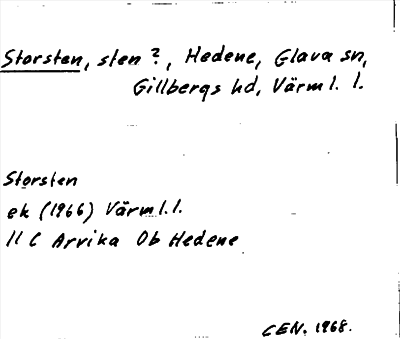 Storsten, sten ?, Hedene, Glava sn,
Gillbergs hd, Värml. l.
Storsten
ek (1966) Värml.l.
11 C Arvika 0b Hedene
CEN. 1968.